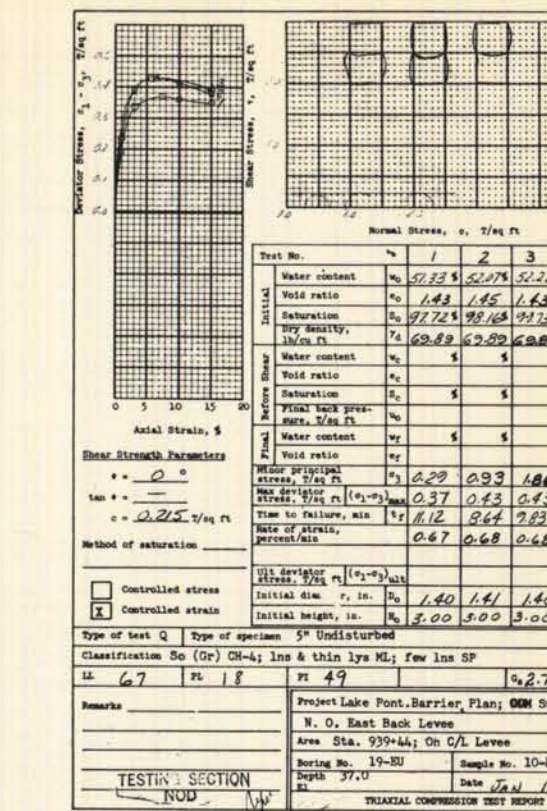 Deviator Stress, σ1 - σ3, T/sq ft
Shear Stress, τ, T/sq ft
0 5 10 15 20
Axial Strain, %
Normal Stress, σ, T/sq ft
Shear Strength Parameters
φ = 0 °
tan φ = —
c = 0.215 T/sq ft
Method of saturation
Controlled stress
X Controlled strain
Test No. 1 2 3
Initial
Water content w0 51.33 % 52.07 % 52.2
Void ratio e0 1.43 1.45 1.43
Saturation S0 97.72 % 98.16 %
Dry density, lb/cu ft γd 69.89 69.89 69.8
Before Shear
Water content wc % %
Void ratio ec
Saturation Sc % %
Final back pressure, T/sq ft u0
Final
Water content wf % %
Void ratio ef
Minor principal stress, T/sq ft σ3 0.29 0.93 1.86
Max deviator stress, T/sq ft (σ1-σ3)max 0.37 0.43 0.43
Time to failure, min tf 11.12 8.64 9.83
Rate of strain, percent/min 0.67 0.68 0.68
Ult deviator stress, T/sq ft (σ1-σ3)ult
Initial dia r, in. D0 1.40 1.41 1.40
Initial height, in. H0 3.00 3.00 3.00
Type of test Q Type of specimen 5" Undisturbed
Classification So (Gr) CH-4; lns & thin lys ML; few lns SP
LL 67 PL 18 PI 49 Gs 2.7
Remarks
Project Lake Pont.Barrier Plan;
N. O. East Back Levee
Area Sta. 939+44; On C/L Levee
Boring No. 19-EU Sample No. 10-
Depth 37.0 Date JAN
El
TESTING SECTION
NOD
TRIAXIAL COMPRESSION TEST REPORT